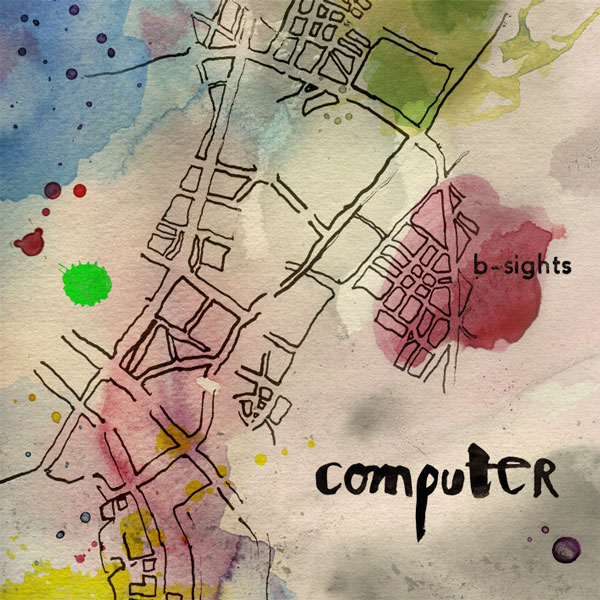 b-sights
computer